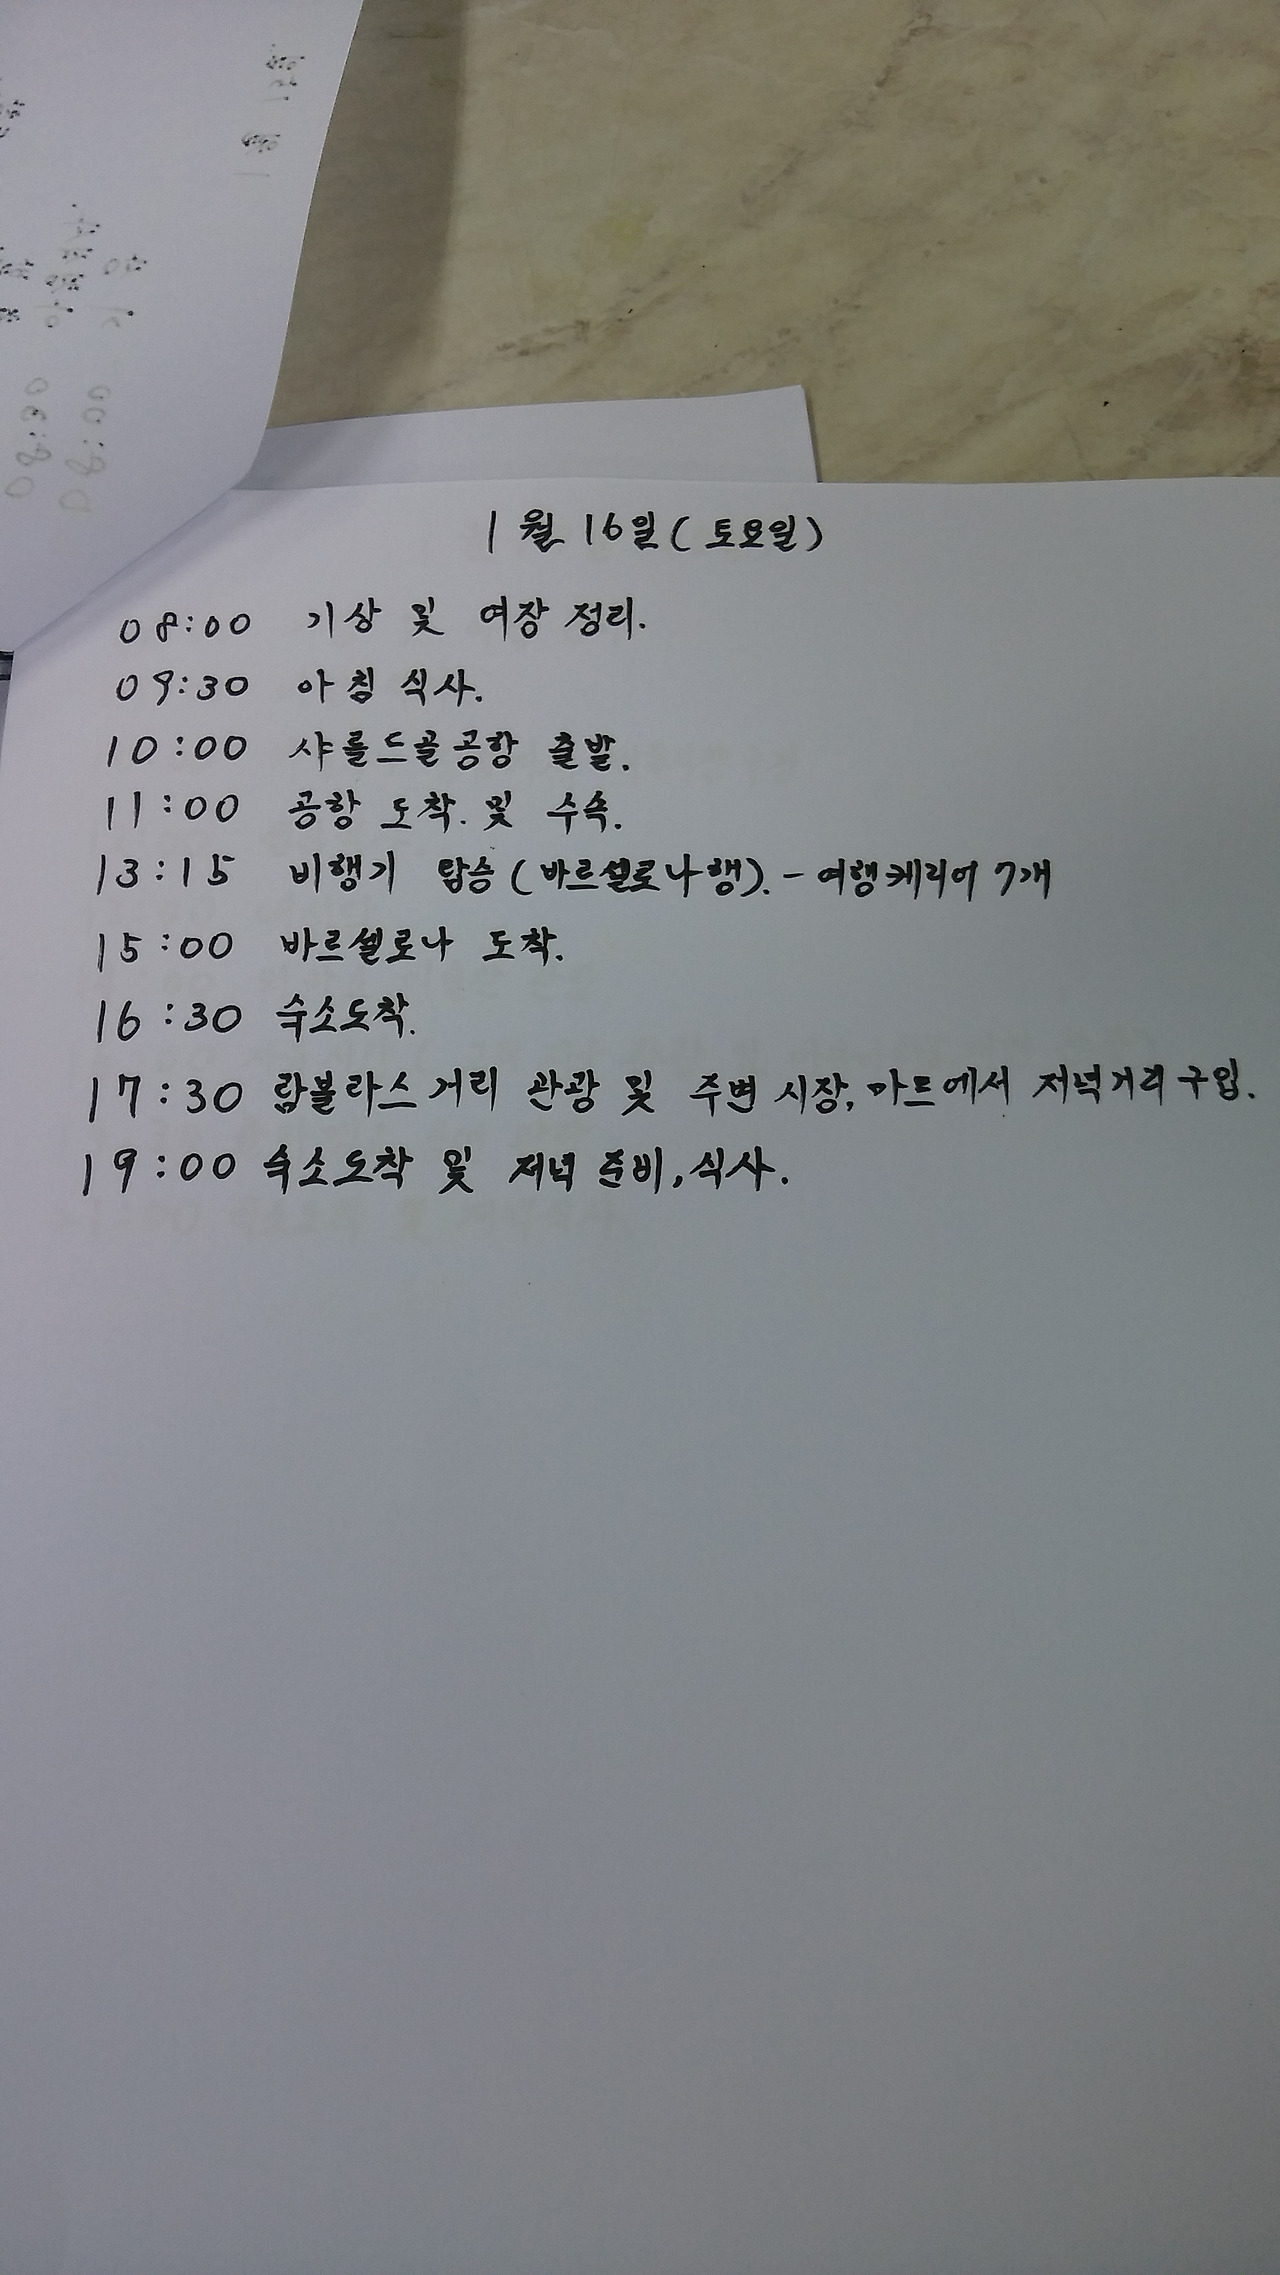 1월 16일(토요일)
08:00 기상 및 여장 정리.
09:30 아침 식사.
10:00 샤를드골공항 출발.
11:00 공항 도착. 및 수속.
13:15 비행기 탑승(바르셀로나행). - 여행케리어 7개
15:00 바르셀로나 도착.
16:30 숙소도착.
17:30 람블라스거리 관광 및 주변 시장, 마트에서 저녁거리구입.
19:00 숙소도착 및 저녁 준비, 식사.